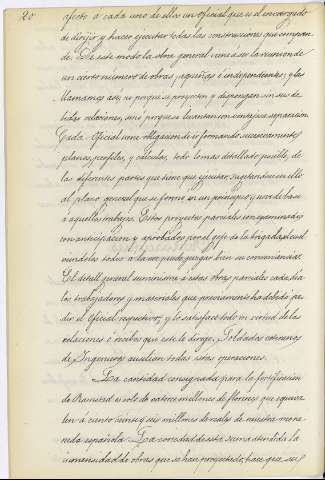 20
afecto á cada una de ellas un oficial que es el encargado
de dirijir y hacer ejecutar todas las construcciones que compren
de. De este modo la obra general viene á ser la reunion de
un cierto número de obras pequeñas é independientes; y las
llamamos así, no porque se proyecten y dispongan sin sus de
bidas relaciones, sinó porque se levantan con consignas separadas
Cada Oficial tiene obligacion de ir formando sucesivamente
planos, perfiles, y cálculos, todo lo mas detallado posible, de
las diferentes partes que tiene que ejecutar, sugetandose en ello
al plano general que se formó en un principio y sirve de base
á aquellos trabajos. Estos proyectos parciales son examinados
con anticipacion y aprobados por el gefe de la brigada, el cual
viendolos todos á la vez puede juzgar bien su combinacion.
El detall general suministra á estas obras parciales cada dia
los trabajadores y materiales que previamente ha debido pe
dir el Oficial respectivo, y le satisface todo en virtud de las
relaciones ó recibos que este le dirige. Soldados veteranos
de Ingenieros auxilian todas estas operaciones.
La cantidad consignada para la fortificacion
de Ramstad es solo de catorce millones de florines que equiva
len á ciento treinta y seis millones de reales de nuestra mone
da española. La cortedad de esta suma atendida la
inmensidad de obras que se han proyectado, hace que su